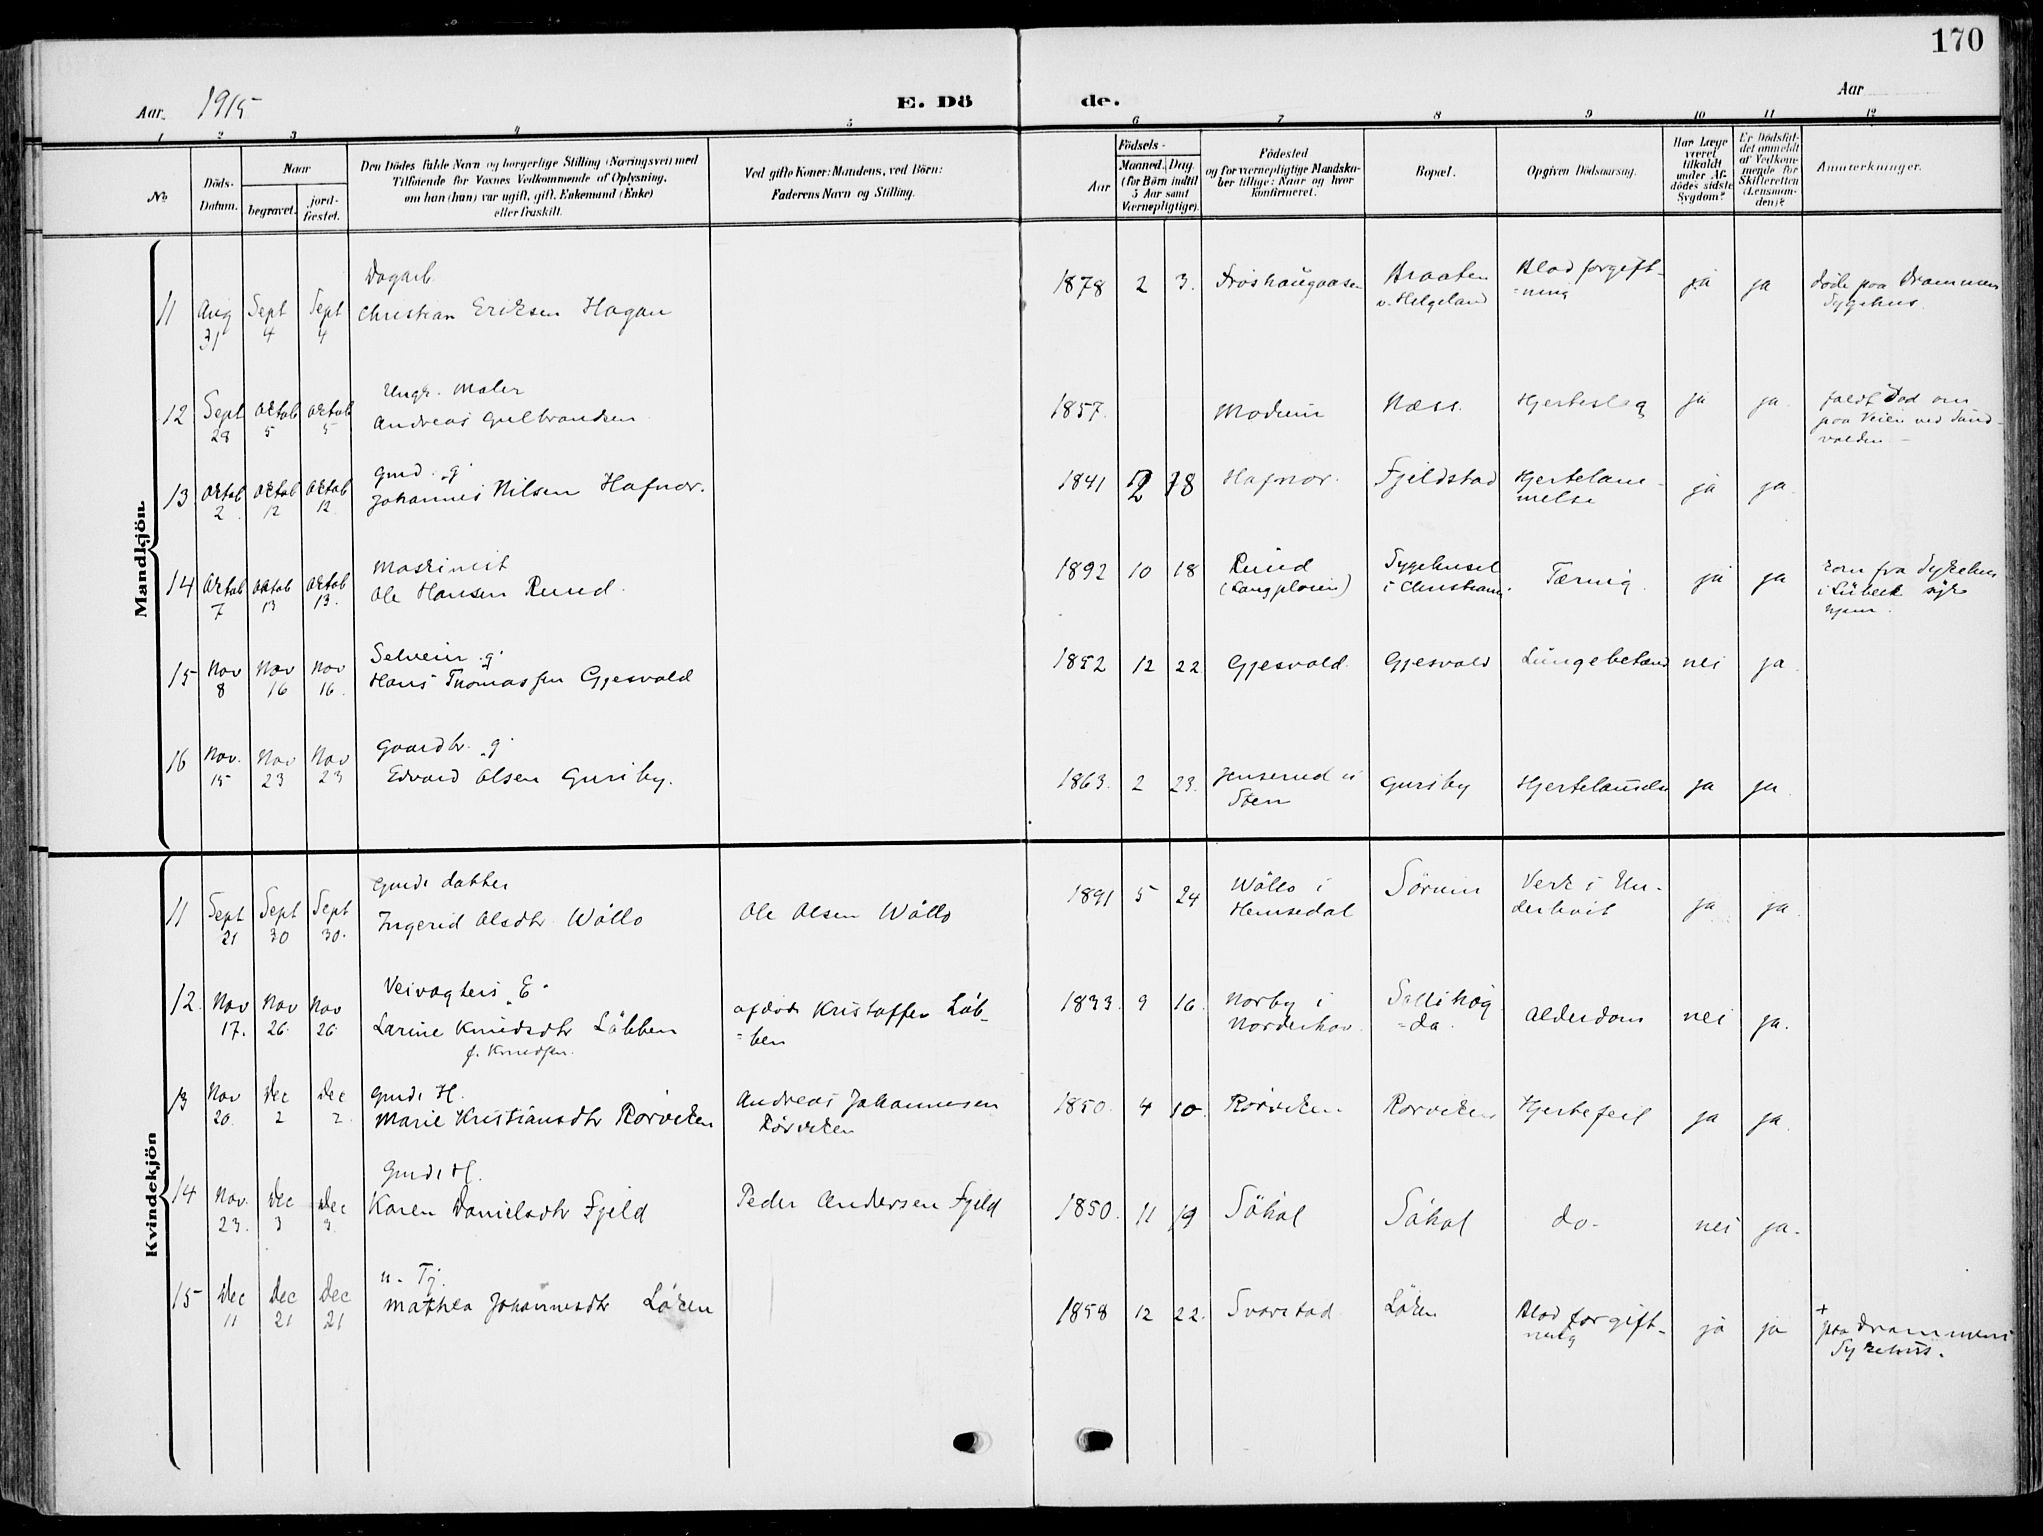 170
Aar 1915 E. Döde. Aar
1 2 3 4 5 6 7 8 9 10 11 12
No
Döds-Datum.
Naar
begravet.
jord-fæstet.
Den Dödes fulde Navn og borgerlige Stilling (Næringsvei) med
Tilföiende for Voxnes Vedkommende af Oplysning,
om han (hun) var ugift, gift, Enkemand (Enke)
eller fraskilt.
Ved gifte Koner: Mandens, ved Börn:
Faderens Navn og Stilling.
Födsels-
Aar
Maaned. Dag.
(for Börn indtil
5 Aar samt
Værnepligtige).
Födested
og for værnepligtige Mandska-
ber tillige: Naar og hvor
konfirmeret.
Bopæl.
Opgiven Dödsaarsag.
Har Læge
været
tilkaldt
under Af-
dödes sidste
Sygdom?
Er Dödsfal-
det anmeldt
af Vedkom-
mende for
Skifteretten
(Lensman-
den)?
Anmerkninger.
Mandkjön.
Dagarb.
11 Aug 31 Sept 4 Sept 4 Christian Eriksen Hagan 1878 2 3. Froshaugaasen Braaten v. Helgeland Blodforgift-ning ja ja døde paa Drammens Sygehus.
Ungk. Maler
12 Sept 28 Oktob 5 Oktob 5 Andreas Gulbrandsen 1857. Modum Næss. Hjerteslag ja ja. faldt død om paa Veien ved Sund-volden
Gmd. "g"
13 Oktob 2 Oktob 12 Oktob 12 Johannes Nilsen Hafnor. 1841 2 18 Hafnor. Fjeldstad Hjertelam-melse ja ja.
Maskinist
14 Oktob 7 Oktob 13 Oktob 13. Ole Hansen Ruud. 1892 10 18 Ruud Sygehuset i Christiania Tæring. ja ja kom fra Sykehus i Lübeck syk hjem.
Selveier "g"
15 Nov 8 Nov 16 Nov 16. Hans Thomassen Gjesvold 1852 12 22 Gjesvold. Gjesvold Lungebetænd nei ja.
Gaardbr. "g"
16 Nov. 15 Nov 23 Nov 23 Edvard Olsen Gursby. 1863. 2 23. Jenserud u Sten Gursby ja ja
Kvindekjön
Gmds datter
11 Sept 21 Sept 30 Sept 30. Ingerid Olsdtr. Wøllo Ole Olsen Wøllo 1891 5 24 Wøllo i Hemsedal Sørum Verk i Un-derlivit ja ja.
Veivogters "E"
12. Nov 17. Nov 26. Nov 26 Larine Knudsdtr Løbben afdøde Kristoffer Løb-ben 1833. 9 16. Norby i Norderhov Sollihøg-da. Alderdom nei ja.
f. Knudsen.
Gmds H.
13 Nov 20. Dec 2 Dec 2 Marie Kristiansdtr Rørviken Andreas Johannesen Rørviken 1850. 4 10. Rørviken Rørviken Hjertefeil ja ja.
Gmds H.
14 Nov. 23. Dec 3 Dec 3. Karen Danielsdtr Fjeld Peder Andersen Fjeld 1850. 11 19 Søhol Søhol do- nei ja.
u. Tj.
15 Dec 11 Dec 21 Dec 21 Mathea Johannesdtr Løken 1858 12 22. Svarstad Løken Blodforgift-ning ja ja + paa Drammens Sykehus.